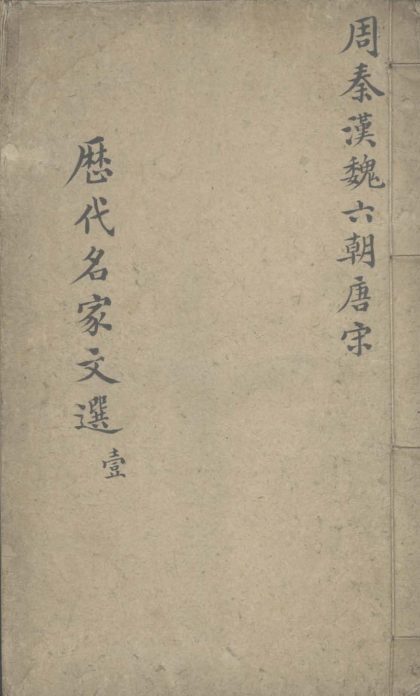 周秦漢魏六朝唐宋
歴代名家文選 壹